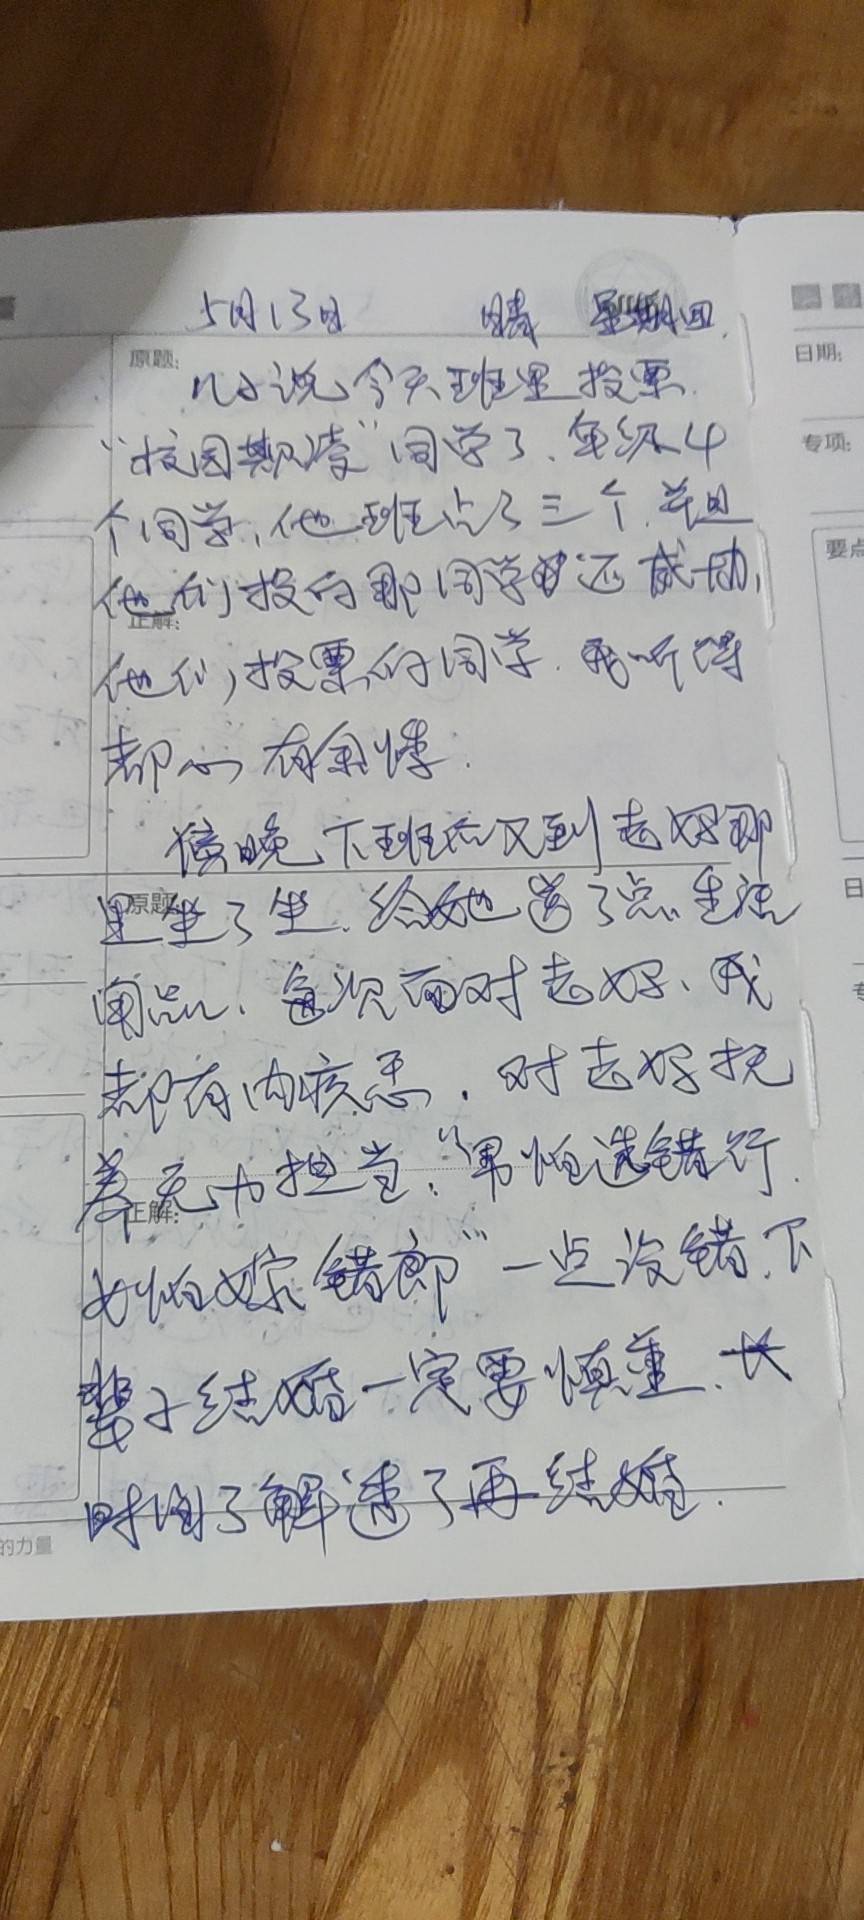 5月13日 晴 星期四
日期:
原题:
儿子说今天班里投票
"校园欺凌"同学了、年级4
专项:
个同学,他班占了三个,并且
要点
他们投的那同学还威胁,
正解:
他们投票的同学,我听得
都心有余悸.
傍晚下班后又到志好那
原题
里坐了坐,给她送了点生活
用品、每次面对志好、我
都有内疚感,对志好抚
养无力担当,"男怕选错行,
正解:
女怕嫁错郎"一点没错,下
辈子结婚一定要慎重、长
时间了解透了再结婚.
的力量